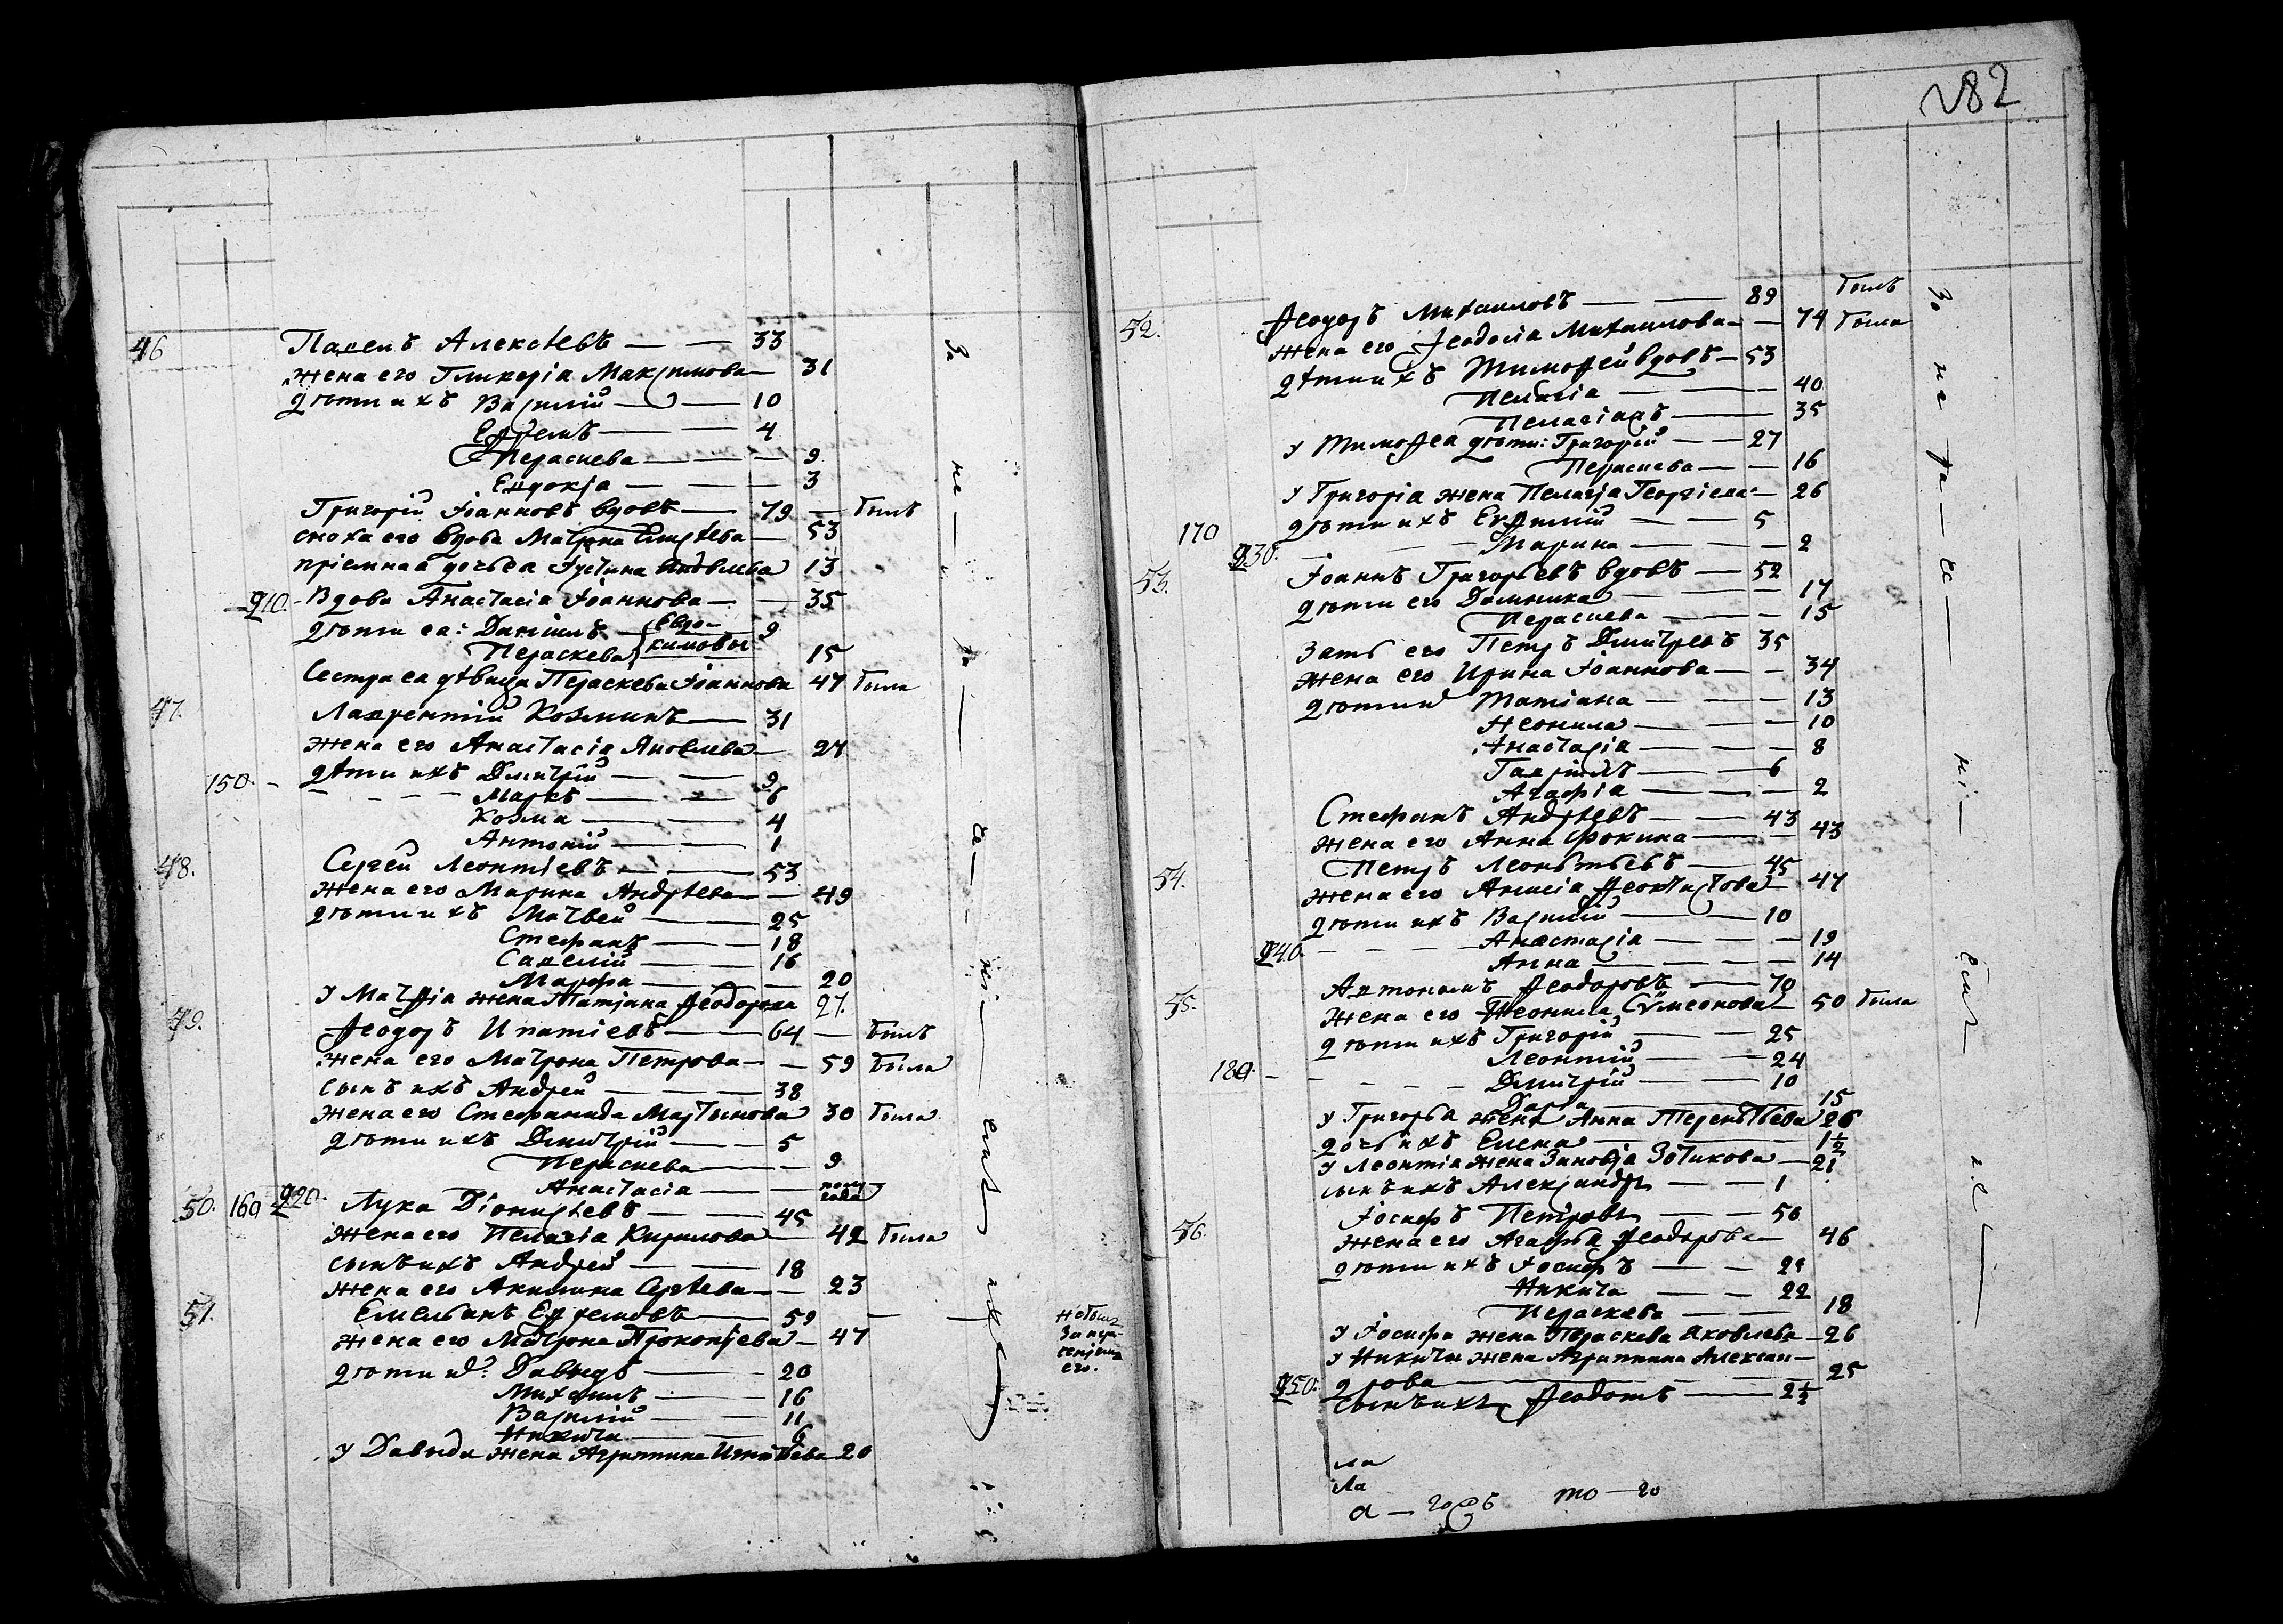 46 Павелъ Алексѣевъ — — 33
жена его Гликерія Максимова — 31
дѣти ихъ Василій — — 10
Ефремъ — — 4
Параскева — — 9
Евдокія — — 3
Григорій Іоанновъ вдовъ — 79 — былъ
сноха его вдова Матрона — 53
пріемная дочь са Іустина Яковлева 13
910. Вдова Анастасія Іоаннова — — 35
дѣти ея: Даніилъ Евдо- 9
Параскева кимовы 15
Сестра ея дѣвица Параскева Іоаннова 47 была
47. Лаврентій Козминъ — 31
жена его Анастасія Яковлева — 27
150. дѣти ихъ Дмитрій — — 9
Марко — — 6
Козма — — 4
Антоній — — 1
48. Сергей Леонтіевъ — — 53
жена его Марина Андрѣева — — 49
дѣти ихъ Матвей — — 25
Стефанъ — — 18
Савелій — — 16
Марфа — — 20
У Матѳіа жена Татіана Ѳеодорова 27.
49. Ѳеодоръ Ипатіевъ — — 64 — былъ
жена его Матрона Петрова — — 59 была
сынъ ихъ Андрей — — 38
жена его Стефанида Мартынова 30 была
дѣти ихъ Дмитрій — — 5
Параскева — — 9
Анастасія — — полу года
50. 160 920. Лука Діонисѣевъ — — 45
жена его Пелагіа Кирилова — 42 была
сынъ ихъ Андрей — — 18
жена его Акилина Сергѣева — — 23
51. Емельянъ Ефремовъ — 59 —
жена его Матрона Прокопіева — 47
небылъ
за
его.
дѣти и: Давыдъ — — 20
Михаилъ — — 16
Василій — — 11
Никита — — 6
У Давыда жена Агрипина Игнатьева 20
За не
282
52. Ѳеодоръ Михаиловъ — — 89 былъ
жена его Ѳеодосіа Михаилова — — 74 была
дѣти ихъ Тимоѳей вдовъ — 53
Пелагіа — — 40
Пелагіа — 35
У Тимоѳеа дѣти: Григорій — — 27
Параскева — — 16
У Григоріа жена Пелагіа Георгіева — 26
170 дѣти ихъ Евѳимій — — 5
930. Марина — — 2
53. Іоаннъ Григорьевъ вдовъ — 52
дѣти его Домника — — 17
Параскева — — 15
Зять его Петръ Дмитревъ 35
жена его Ирина Іоаннова — — 34
дѣти и Татіана — — 13
Неонила — — 10
Анастасіа — — 8
Гавріилъ — — 6
Агафіа — — 2
Стефанъ Андрѣевъ — — 43
жена его Анна Фокина — — 43
54. Петръ Леонтьевъ — 45
жена его Анисіа Ѳеоктистова — 47
дѣти ихъ Василій — — 10
940. Анастасіа — — 19
Анна — — 14
55. Автономъ Ѳеодоровъ — 70
жена его Неонила Сѵмеонова — 50 была
дѣти ихъ Григорій — — 25
Леонтій — — 24
180 Дмитрій — — 10
Дарья — 15
У Григорьа жена Анна Терентьева 26
дочь ихъ Елена — 1½
У Леонтіа жена Зиновіа Зотикова — 21
сынъ ихъ Александръ — — 1
56. Іосифъ Петровъ — — 50
жена его Агафьа Ѳеодорова — 46
дѣти ихъ Іосифъ — — 25
Никита — — 22
Параскева — — 18
У Іосифа жена Параскева Яковлева — 26
У Никиты жена Агрипина Алексан-
дрова — — 25
950. сынъ ихъ Ѳеодотъ — — 2½
За не
ла
ла